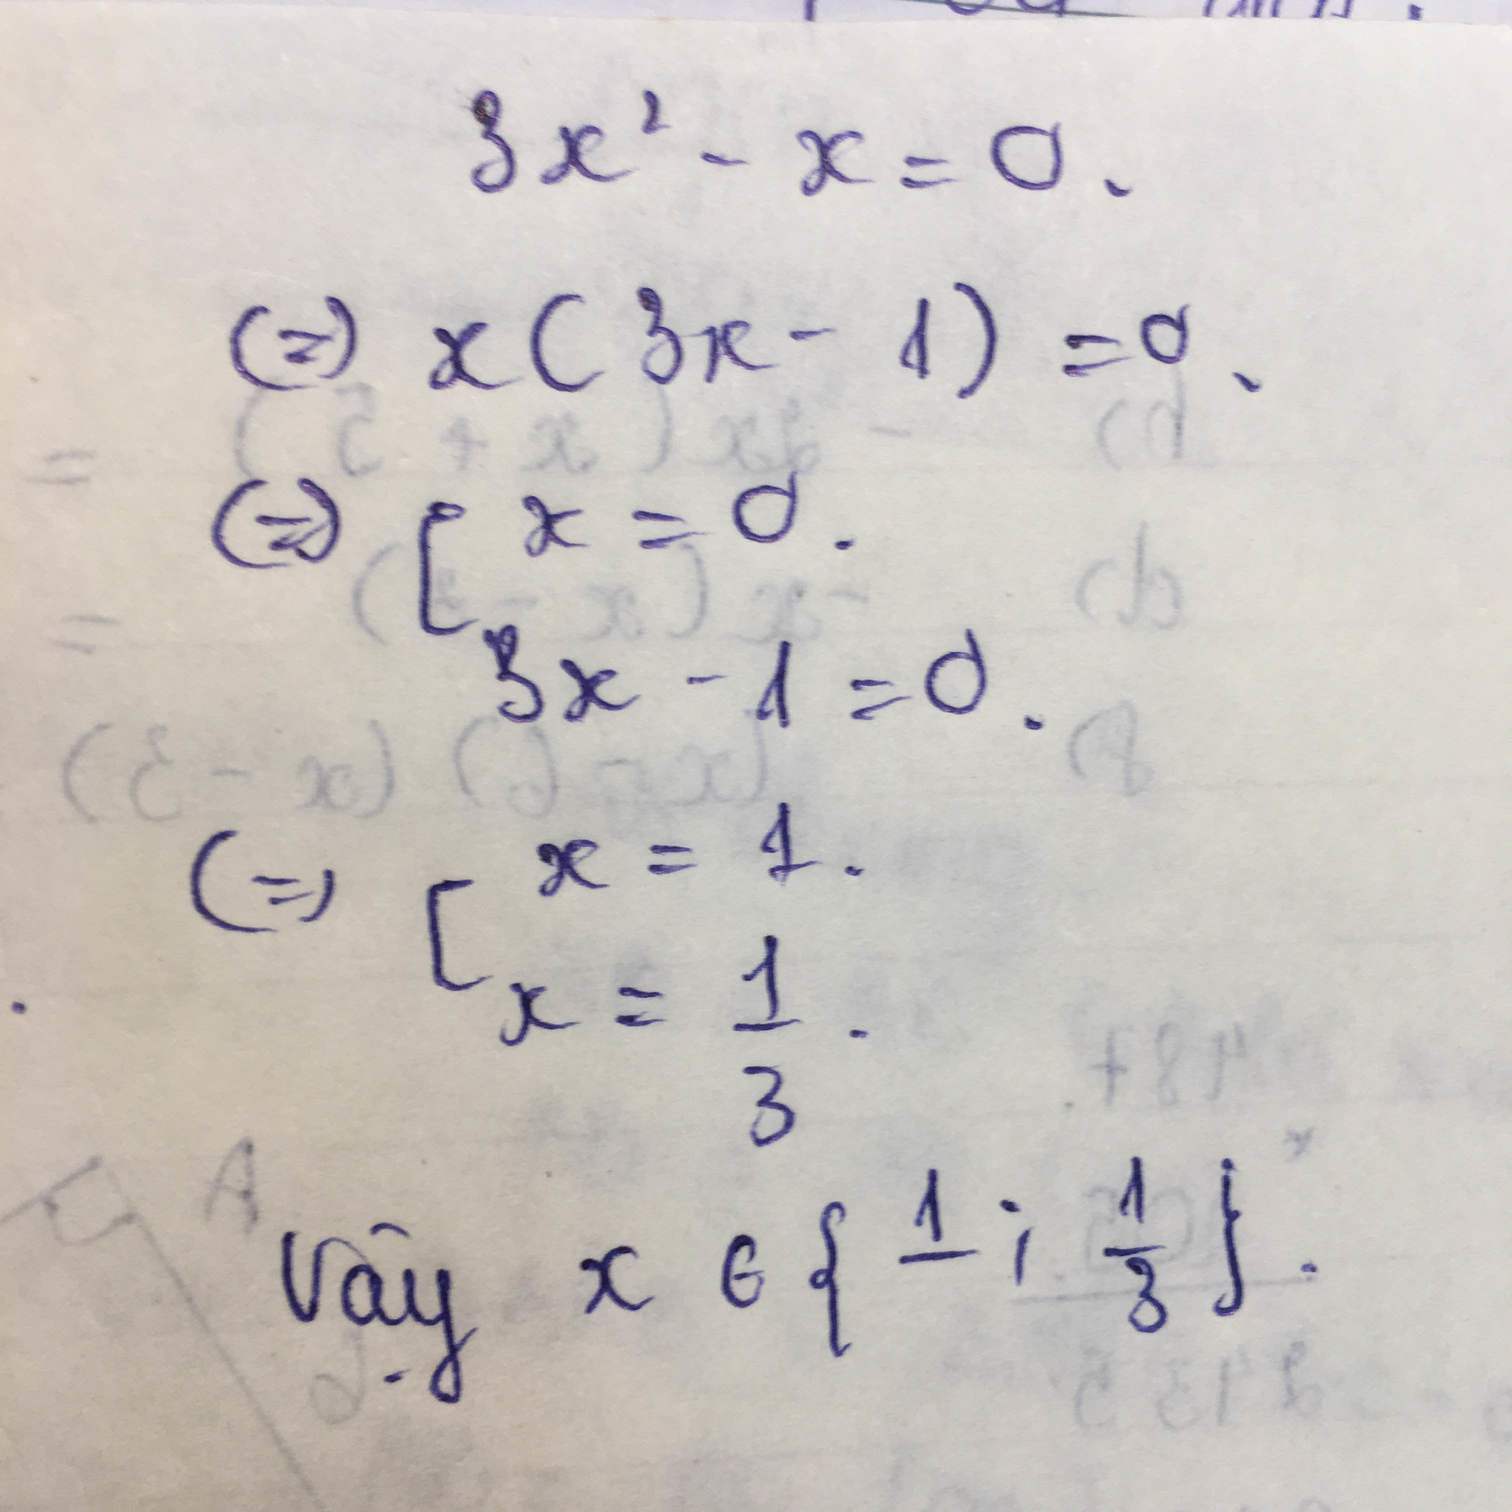 3x² - x = 0.
(=) x(3x - 1) = 0.
(=) [ x = 0.
3x - 1 = 0.
(=) [ x = 1.
x = 1/3.
Vậy x ∈ { 1 ; 1/3 }.